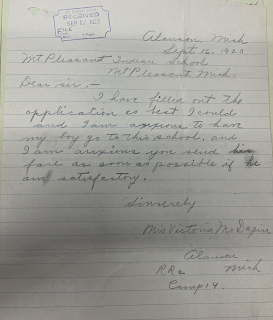 RECEIVED
FILE
Alanson, Mich
Sept 16, 1929
Mt Pleasant Indian School
Mt Pleasant Mich.
Dear sir, -
I have filled out the
application as best I could
and I am anxious to have
my boy go to this school, and
I am anxious you send his
fare as soon as possible if he
am satisfactory.
Sincerely
Mrs Victoria
Alanson
RR2 Mich
Camp 14.